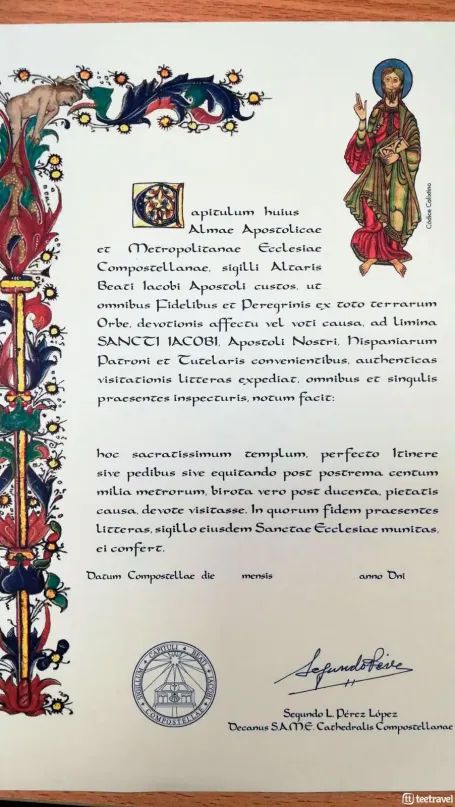 Capitulum huius
Almae Apostolicae
et Metropolitanae Ecclesiae
Compostellanae, sigilli Altaris
Beati Iacobi Apostoli custos, ut
omnibus Fidelibus et Peregrinis ex toto terrarum
Orbe, devotionis affectu vel voti causa, ad limina
SANCTI IACOBI, Apostoli Nostri, Hispaniarum
Patroni et Tutelaris convenientibus, authenticas
visitationis litteras expediat, omnibus et singulis
praesentes inspecturis, notum facit:
Códice Calixtino
hoc sacratissimum templum, perfecto Itinere
sive pedibus sive equitando post postrema centum
milia metrorum, birota vero post ducenta, pietatis
causa, devote visitasse. In quorum fidem praesentes
litteras, sigillo eiusdem Sanctae Ecclesiae munitas,
ei confert.
Datum Compostellae die mensis anno Dni
SIGILLUM CAPITULI BEATI IACOBI
COMPOSTELLAE
Segundo Pérez
Segundo L. Pérez López
Decanus S.A.M.E. Cathedralis Compostellanae
tt teetravel